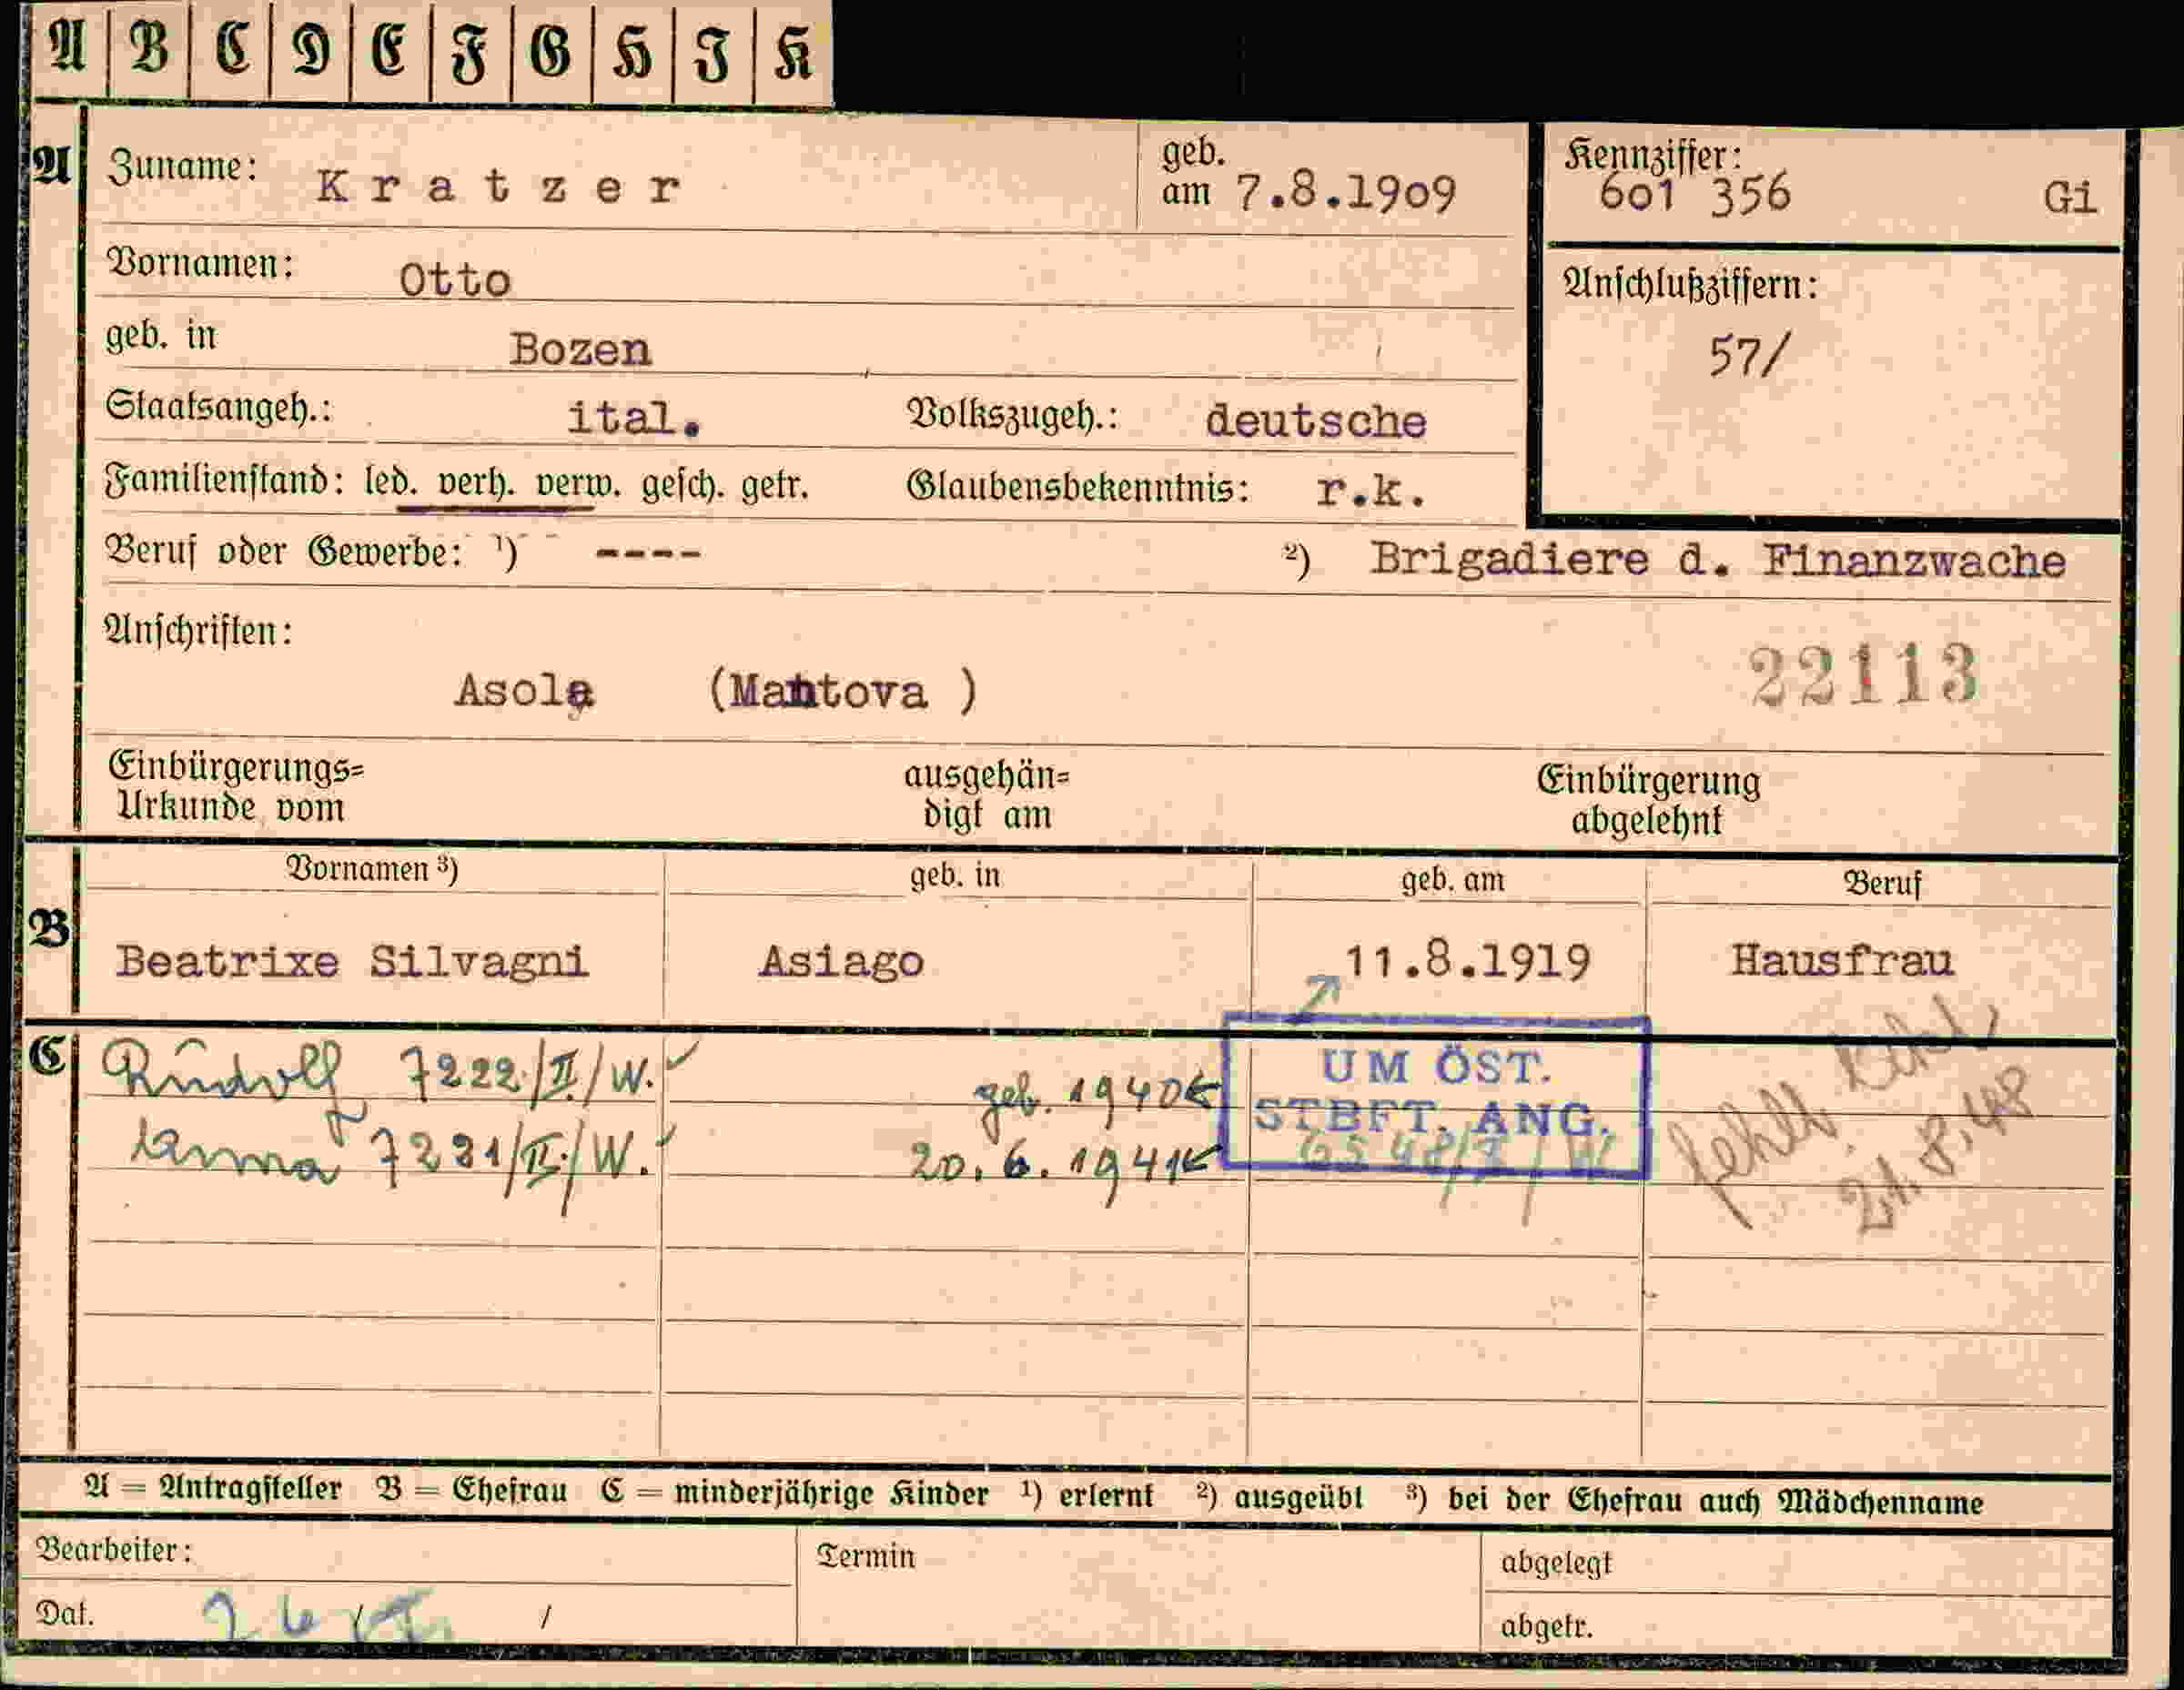 A B C D E F G H I K
A Zuname: Kratzer geb. am 7.8.1909 Kennziffer: 601 356 Gi
Vornamen: Otto
Anschlußziffern:
geb. in Bozen
57/
Staatsangeh.: ital. Volkszugeh.: deutsche
Familienstand: led. verh. verw. gesch. getr. Glaubensbekenntnis: r.k.
Beruf oder Gewerbe: ¹) ---- ²) Brigadiere d. Finanzwache
Anschriften:
22113
Asola (Mantova )
Einbürgerungs=
Urkunde vom
ausgehän=
digt am
Einbürgerung
abgelehnt
Vornamen ³) geb. in geb. am Beruf
B Beatrixe Silvagni Asiago 11.8.1919 Hausfrau
C Rudolf 7222/II/W. geb. 1940
UM ÖST.
STBFT. ANG.
Anna 7221/II/W. 20.6.1941
fehlt
21.8.48
A = Antragsteller B = Ehefrau C = minderjährige Kinder ¹) erlernt ²) ausgeübt ³) bei der Ehefrau auch Mädchenname
Bearbeiter: Termin abgelegt
Dat. / abgetr.